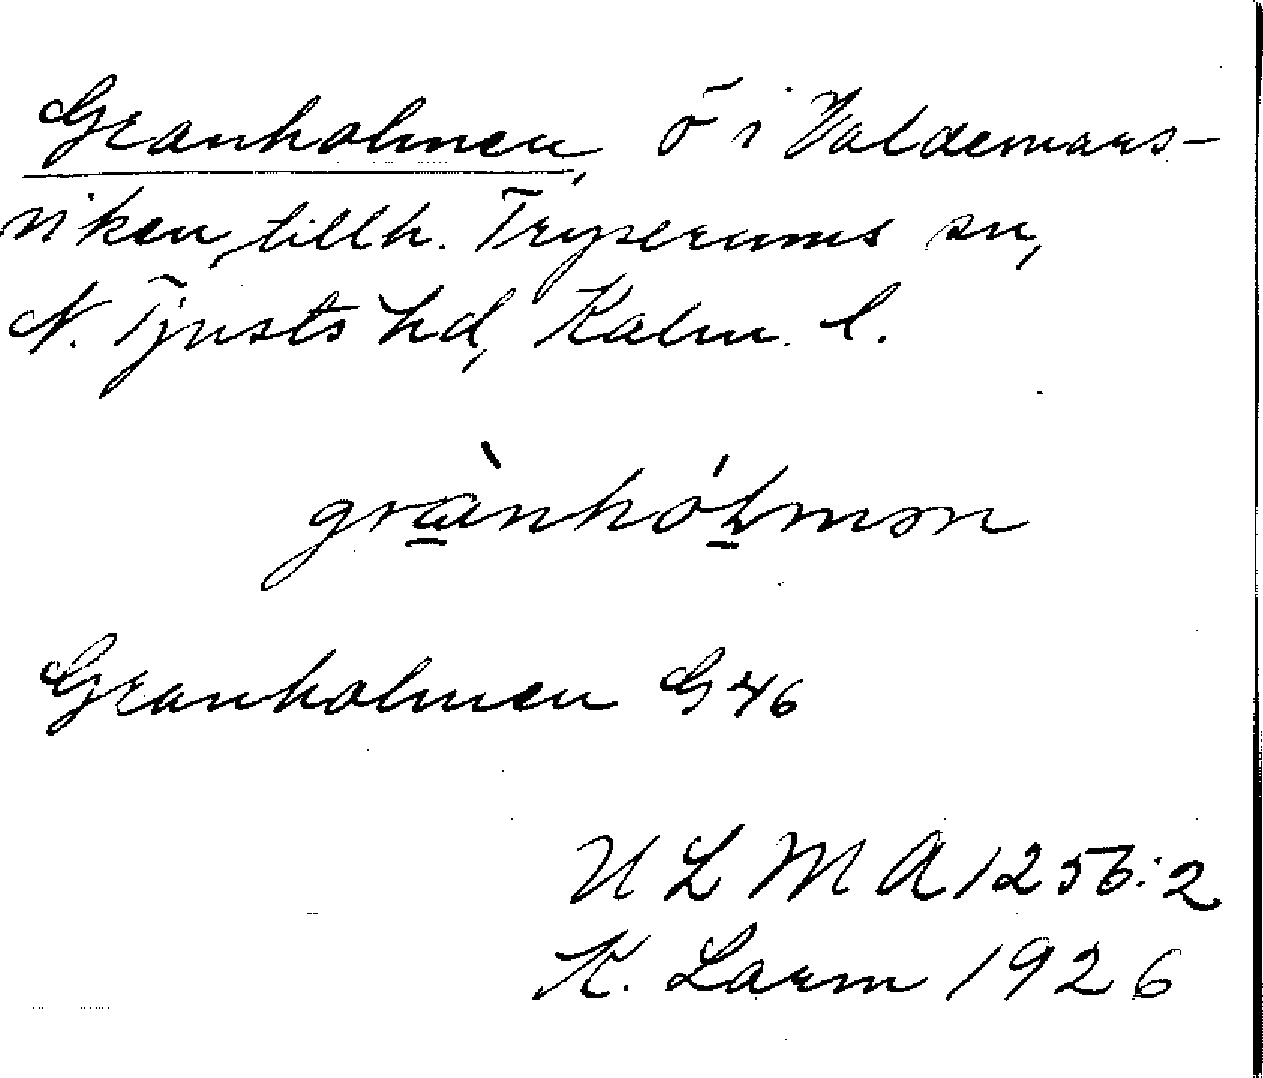 Granholmen, ö i Valdemars-
viken, tillh. Tryserums sn,
N. Tjusts hd, Kalm. l.
grànhólmən
Granholmen G 46
U L M A 1256:2
K. Larm 1926